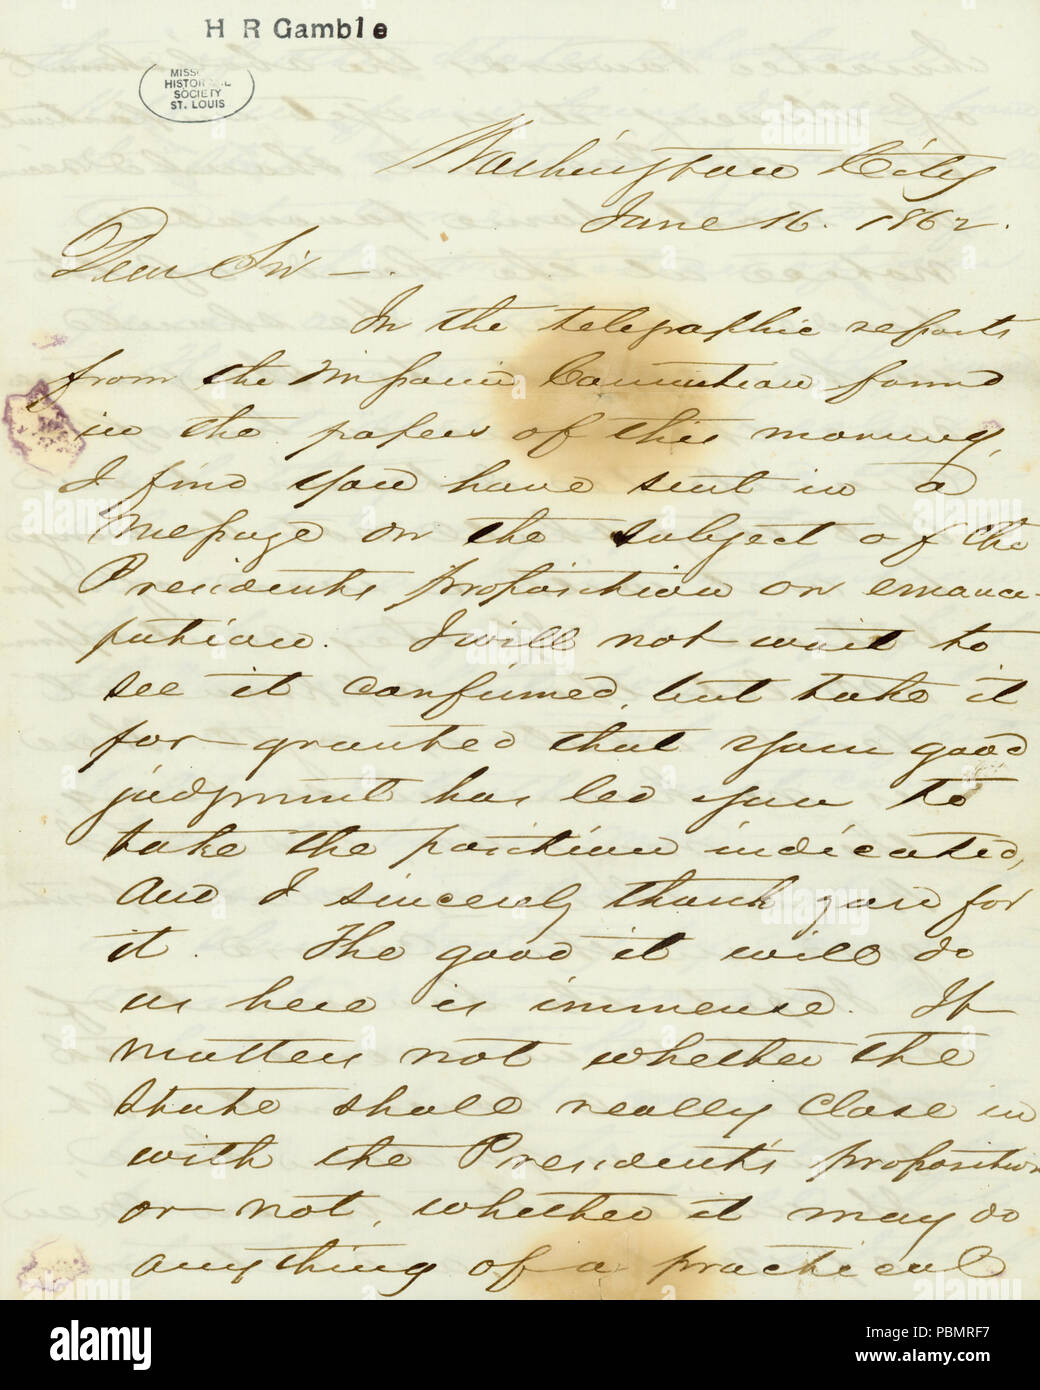 H R Gamble
MISSOURI
HISTORICAL
SOCIETY
ST. LOUIS
Washington City
June 16. 1862.
Dear Sir —.
In the telegraphic reports
from the Missouri Convention found
in the papers of this morning,
I find you have sent in a
Message on the subject of the
Presidents proposition on emanci-
pation. I will not wait to
see it confirmed, but take it
for granted that your good
judgment has led you to
take the position indicated,
and I sincerely thank you for
it. The good it will do
us here is immense. It
matters not whether the
State shall really close in
with the President's proposition
or not, whether it may do
anything of a practical
alamy
Image ID: PBMRF7
www.alamy.com